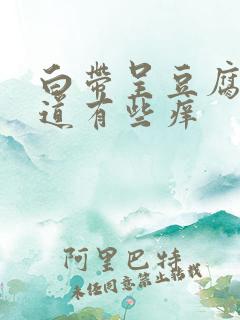 白带呈豆腐
道有些痒
阿里巴特
未经同意禁止转载